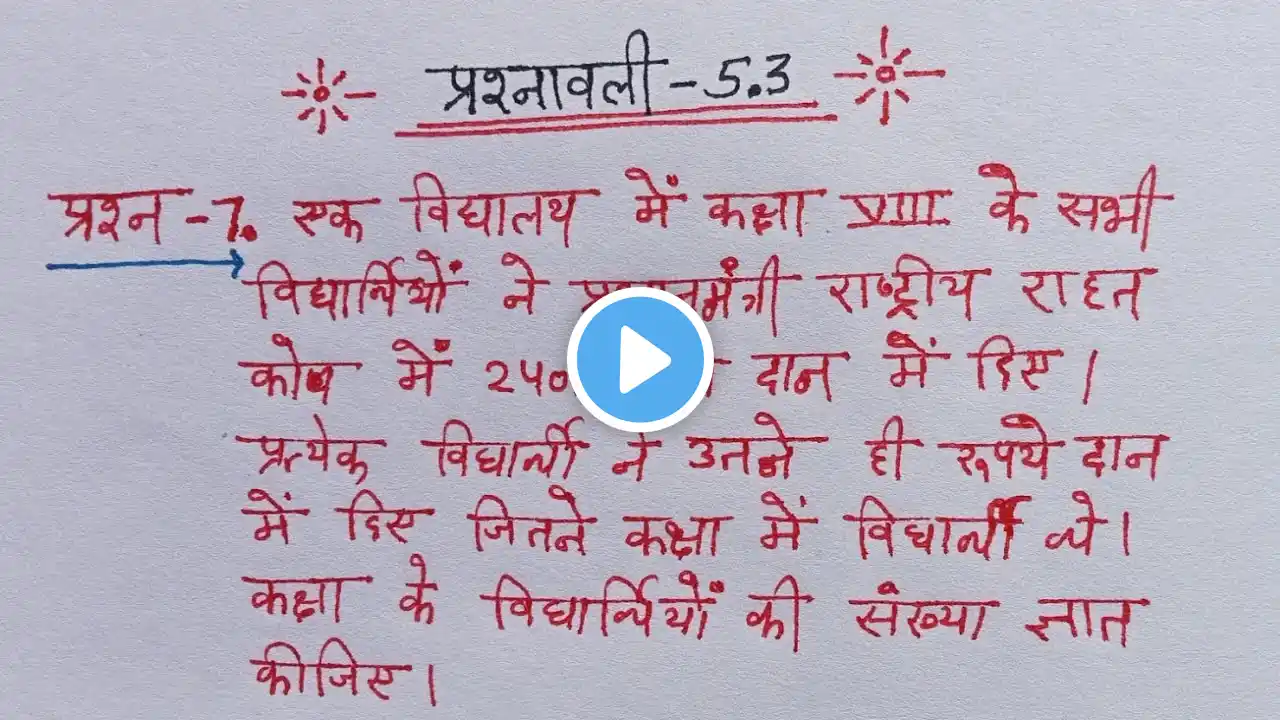 प्रश्नावली - 5.3
प्रश्न - 7. एक विद्यालय में कक्षा VIII के सभी
विद्यार्थियों ने राष्ट्रीय राहत
कोष में दान में दिए।
प्रत्येक विद्यार्थी ने उतने ही रूपये दान
में दिए जितने कक्षा में विद्यार्थी थे।
कक्षा के विद्यार्थियों की संख्या ज्ञात
कीजिए।